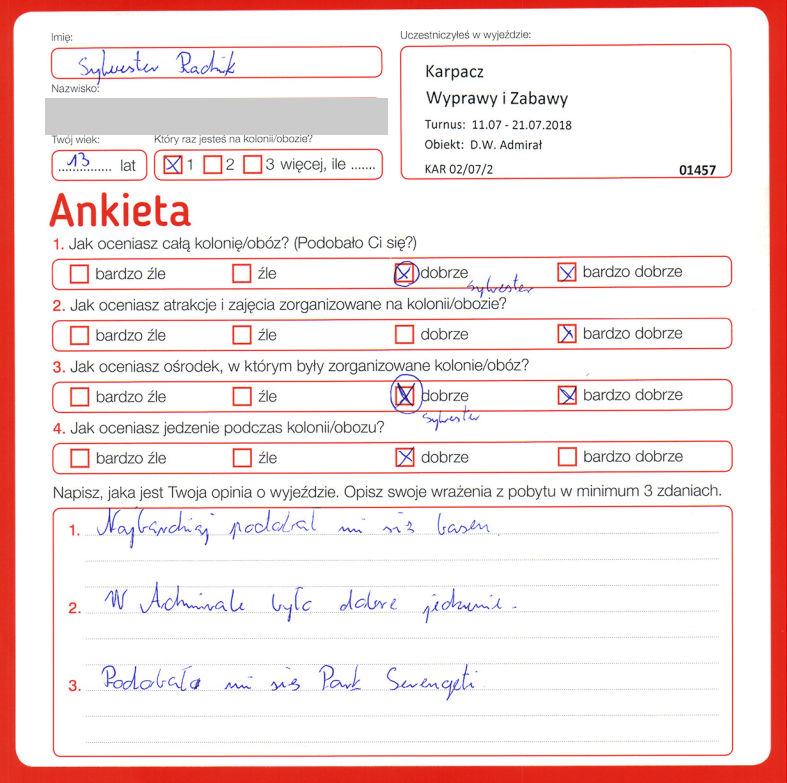 Imię:
Uczestniczyłeś w wyjeździe:
Sylwester Radnik
Karpacz
Nazwisko:
Wyprawy i Zabawy
Turnus: 11.07 - 21.07.2018
Twój wiek:
Który raz jesteś na kolonii/obozie?
Obiekt: D.W. Admirał
13 lat
1 2 3 więcej, ile .......
KAR 02/07/2
01457
Ankieta
1. Jak oceniasz całą kolonię/obóz? (Podobało Ci się?)
bardzo źle źle dobrze bardzo dobrze
Sylwester
2. Jak oceniasz atrakcje i zajęcia zorganizowane na kolonii/obozie?
bardzo źle źle dobrze bardzo dobrze
3. Jak oceniasz ośrodek, w którym były zorganizowane kolonie/obóz?
bardzo źle źle dobrze bardzo dobrze
Sylwester
4. Jak oceniasz jedzenie podczas kolonii/obozu?
bardzo źle źle dobrze bardzo dobrze
Napisz, jaka jest Twoja opinia o wyjeździe. Opisz swoje wrażenia z pobytu w minimum 3 zdaniach.
1. Najbardziej podobał mi się basen.
2. W Admirale było dobre jedzenie.
3. Podobało mi się Park Serengeti